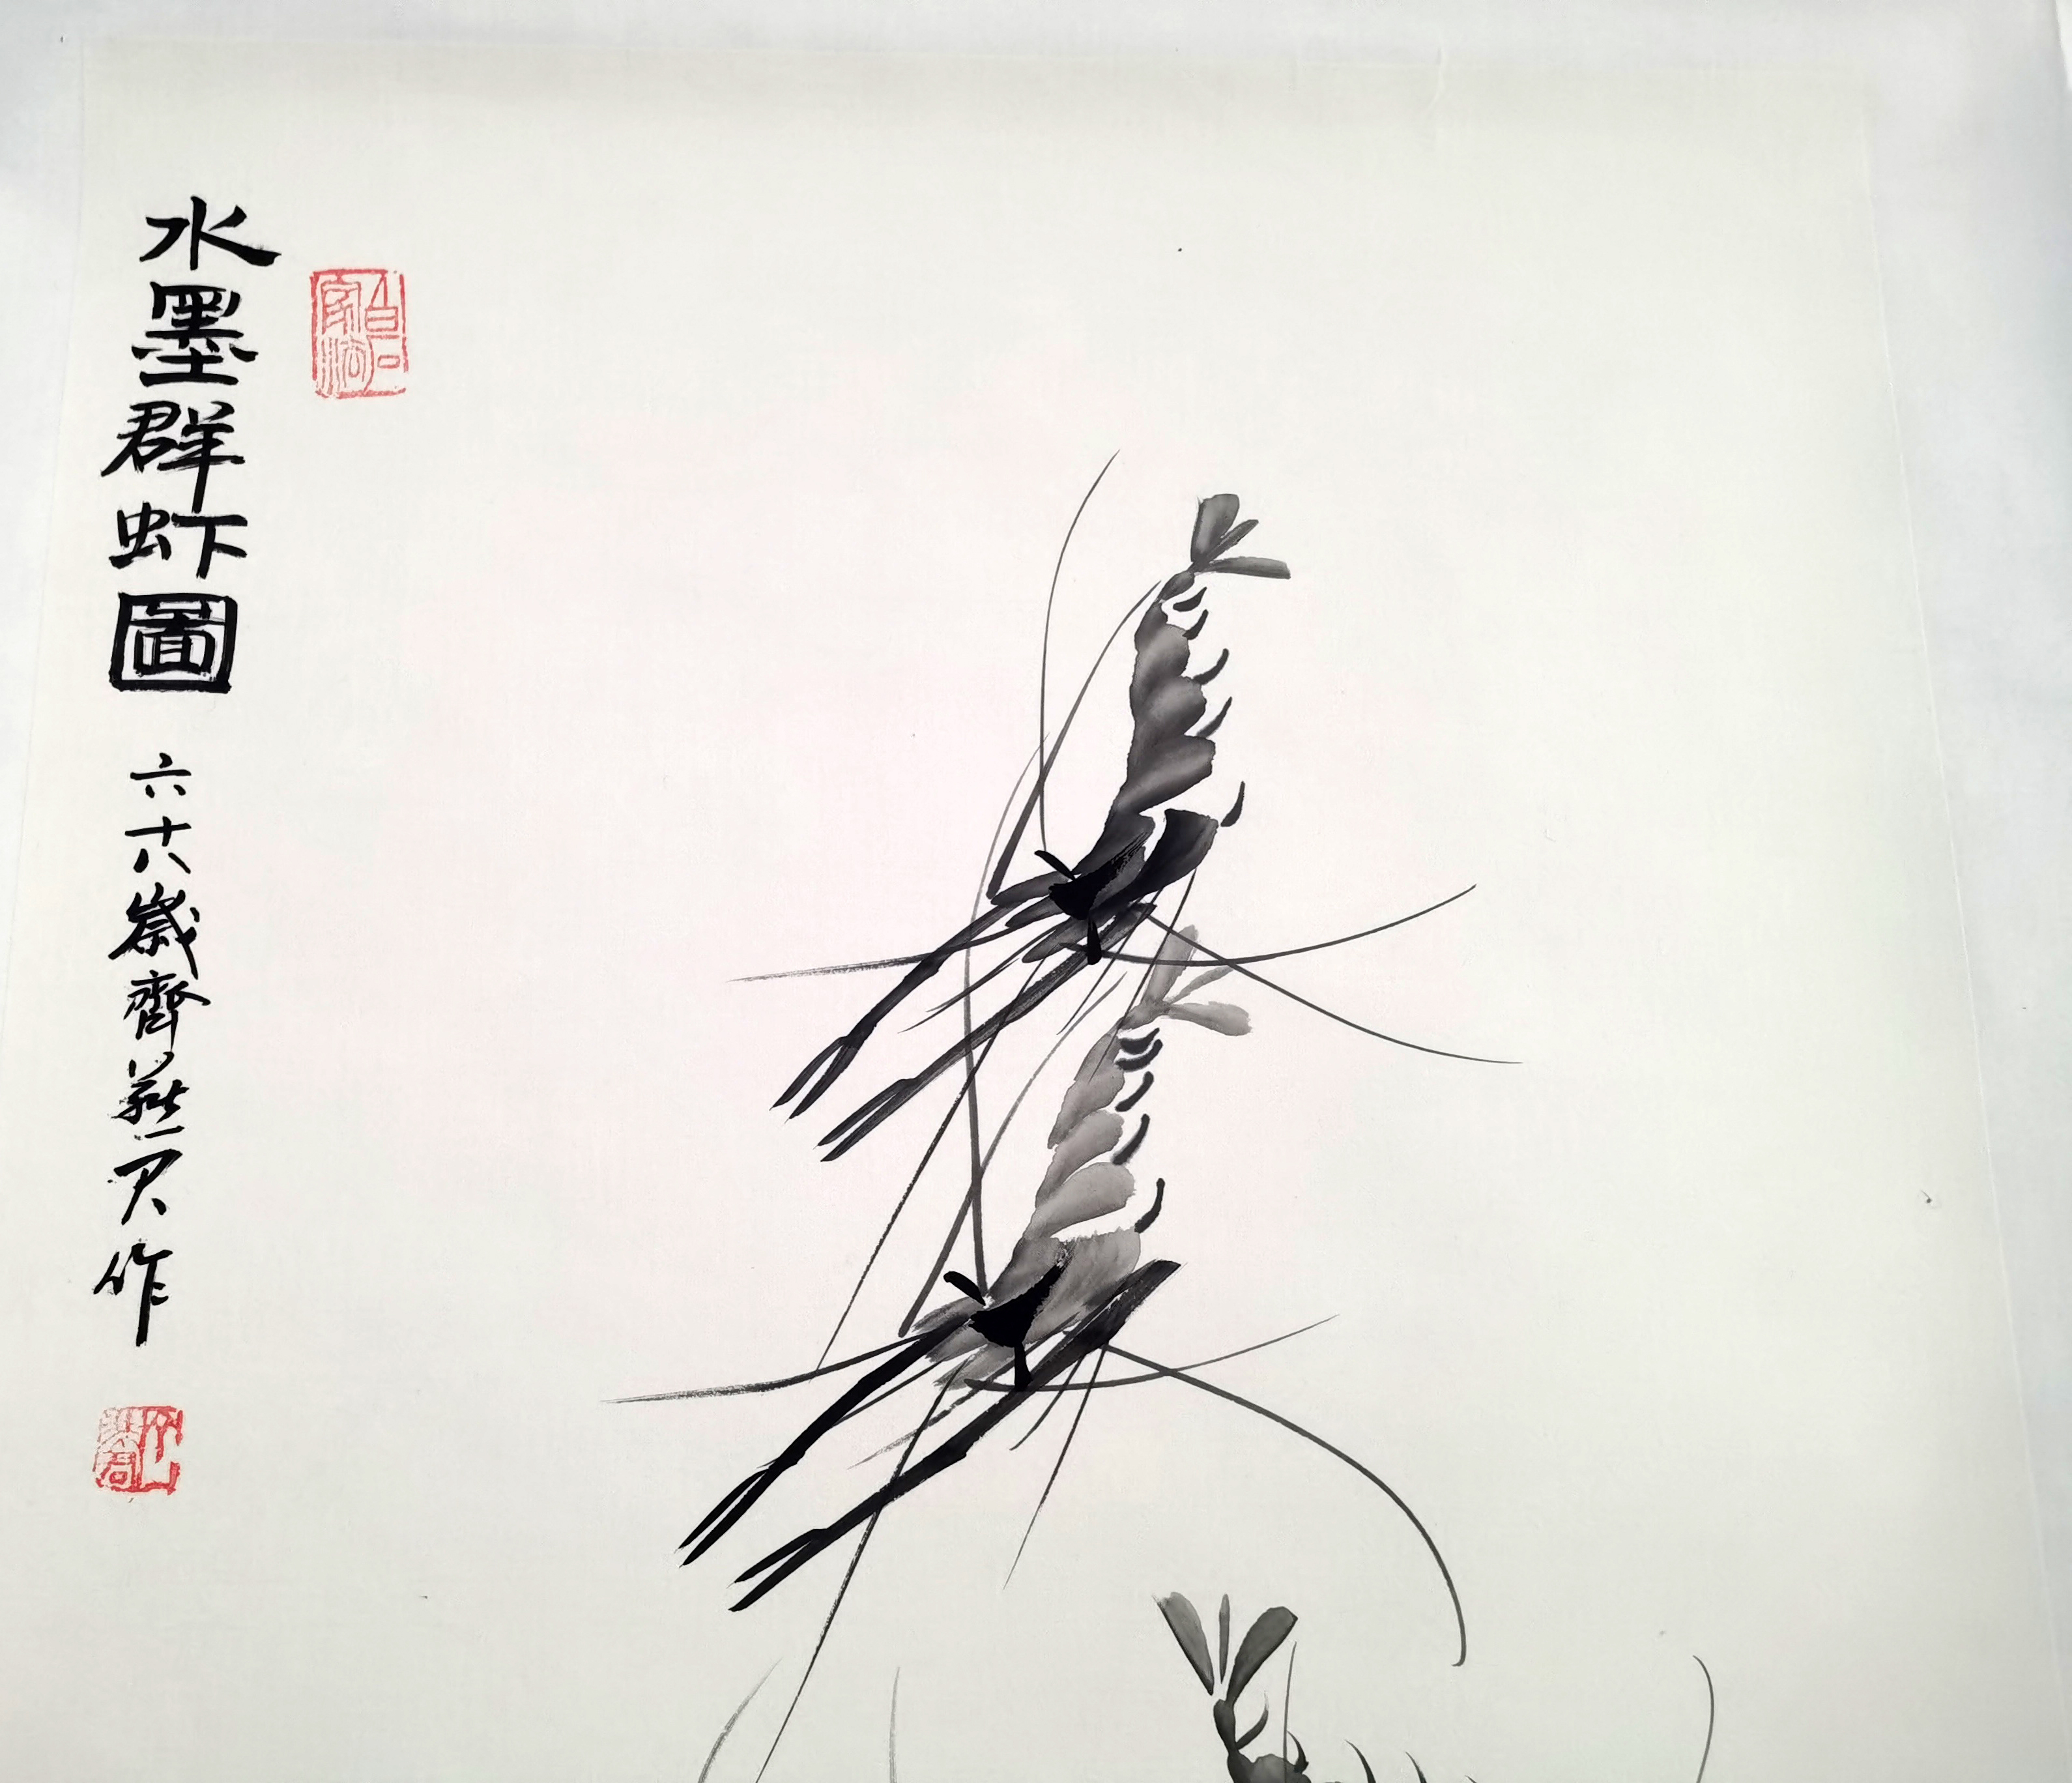 水墨群虾圖
六十八歲齊
作
白石家法